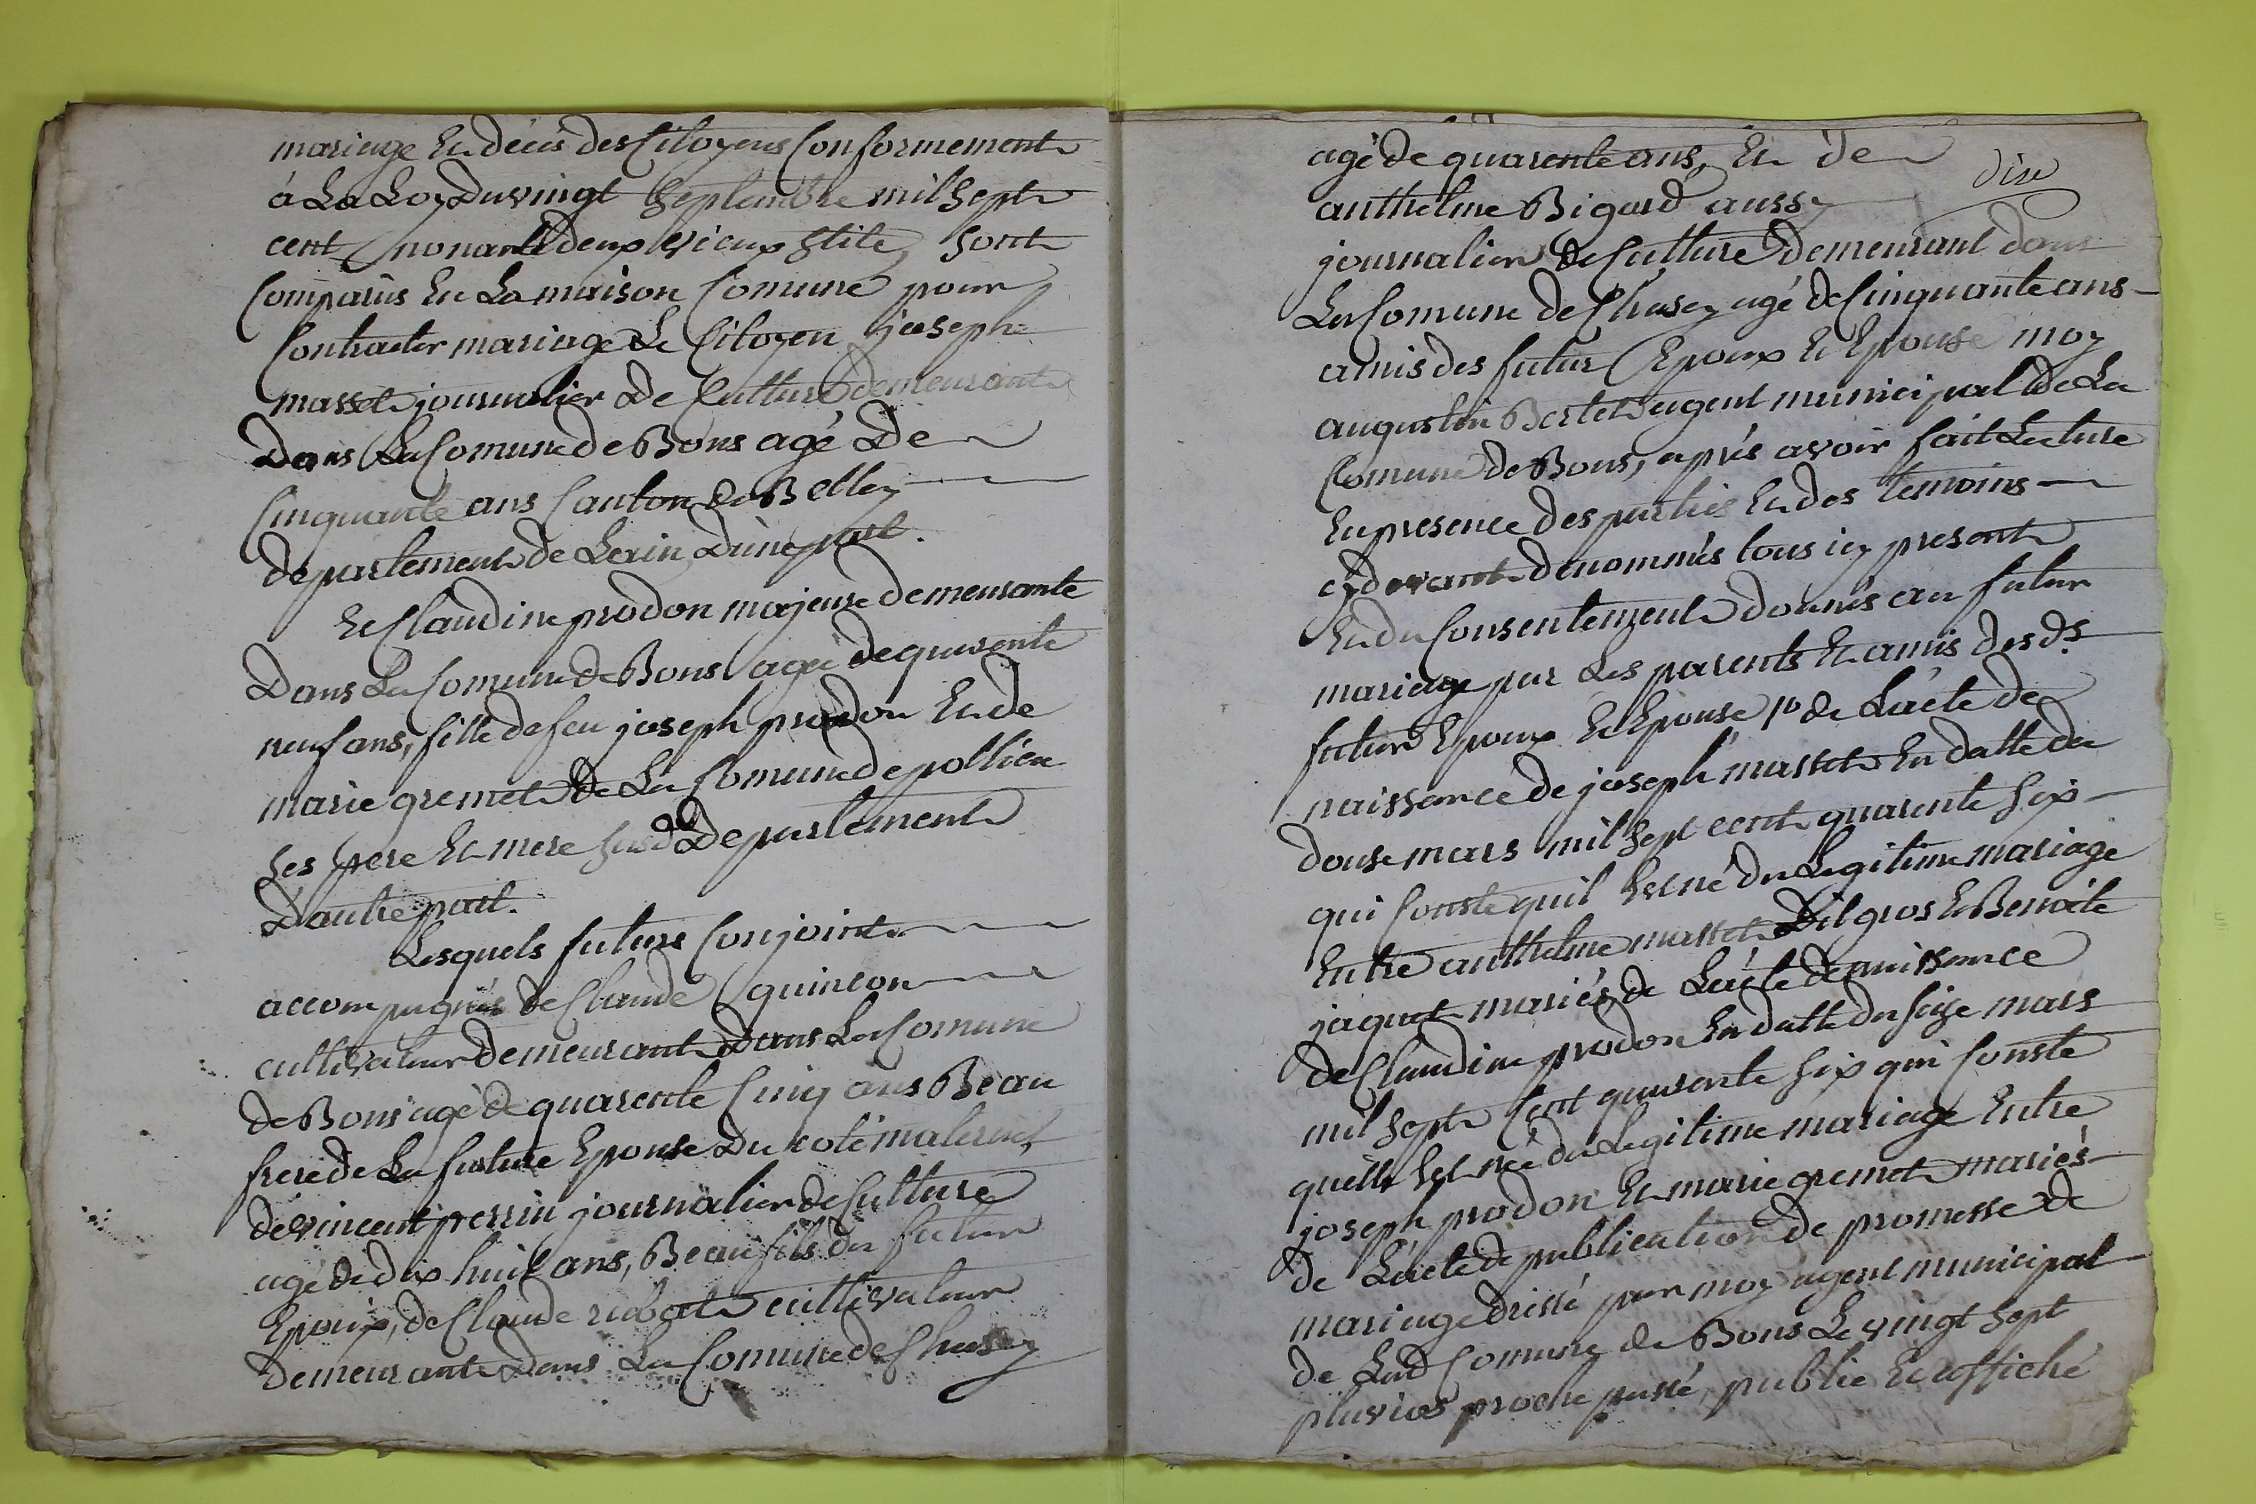 mariage Et décés des Citoyens Conformement
á La Loy Du vingt Septembre mil Sept
cent nonante deux vieux stile, sont
Comparus En La maison Comune pour
Contracter mariage Le Citoyen joseph
masset journalier De Culture demeurant
Dans La Comune de Bons agé De
Cinquante ans Canton de Belley
departement de Lerin D'une part.
Et Claudine prodon majeure demeurante
Dans La Comune de Bons agée de quarente
neuf ans, fille de feu joseph prodon Et de
marie gremet de La Comune de pollieu
ses pere Et mere susd Departement
D'autre part.
Lesquels futurs Conjoint
accompagnés de Claude quinson
cultivateur demeurant Dans La Comune
de Bons agé de quarente Cinq ans Beau
frere de La future Epouse Du coté maternel,
de vincent perrin journalier de Culture
agé de dix huit ans, Beau fils du futur
Epoux, de Claude rubat cultivateur
demeurant Dans La Comune de Chasey
agé de quarente ans, Et de
dix
anthelme Bigard aussy
journalier de Culture demeurant dans
La Comune de Chasey agé de Cinquante ans
amis des futur Epoux Et Epouse moy
augustin Bertet agent municipal de La
Comune de Bons, aprés avoir fait Lecture
En presence des parties Et des temoins
cydevant denommés tous icy present
Et du Consentement donnés au futur
mariage par Les parents Et amis des ds
futur Epoux Et Epouse 1o de L'acte de
naissance de joseph masset En datte du
douse mars mil sept cent quarente six
qui Conste quil Est né du Legitime mariage
Entre anthelme masset Dit gros Et Benoite
jaquet mariés, de L'acte de naissance
de Claudine prodon En datte du seize mars
mil sept Cent quarente six qui Conste
quelle Est née du Legitime mariage Entre
joseph prodon Et marie gremet mariés
de L'acte de publication de promesse de
mariage dressé par moy agent municipal
de Lad Comune de Bons Le vingt sept
pluvios proche passé, publié Et affiché